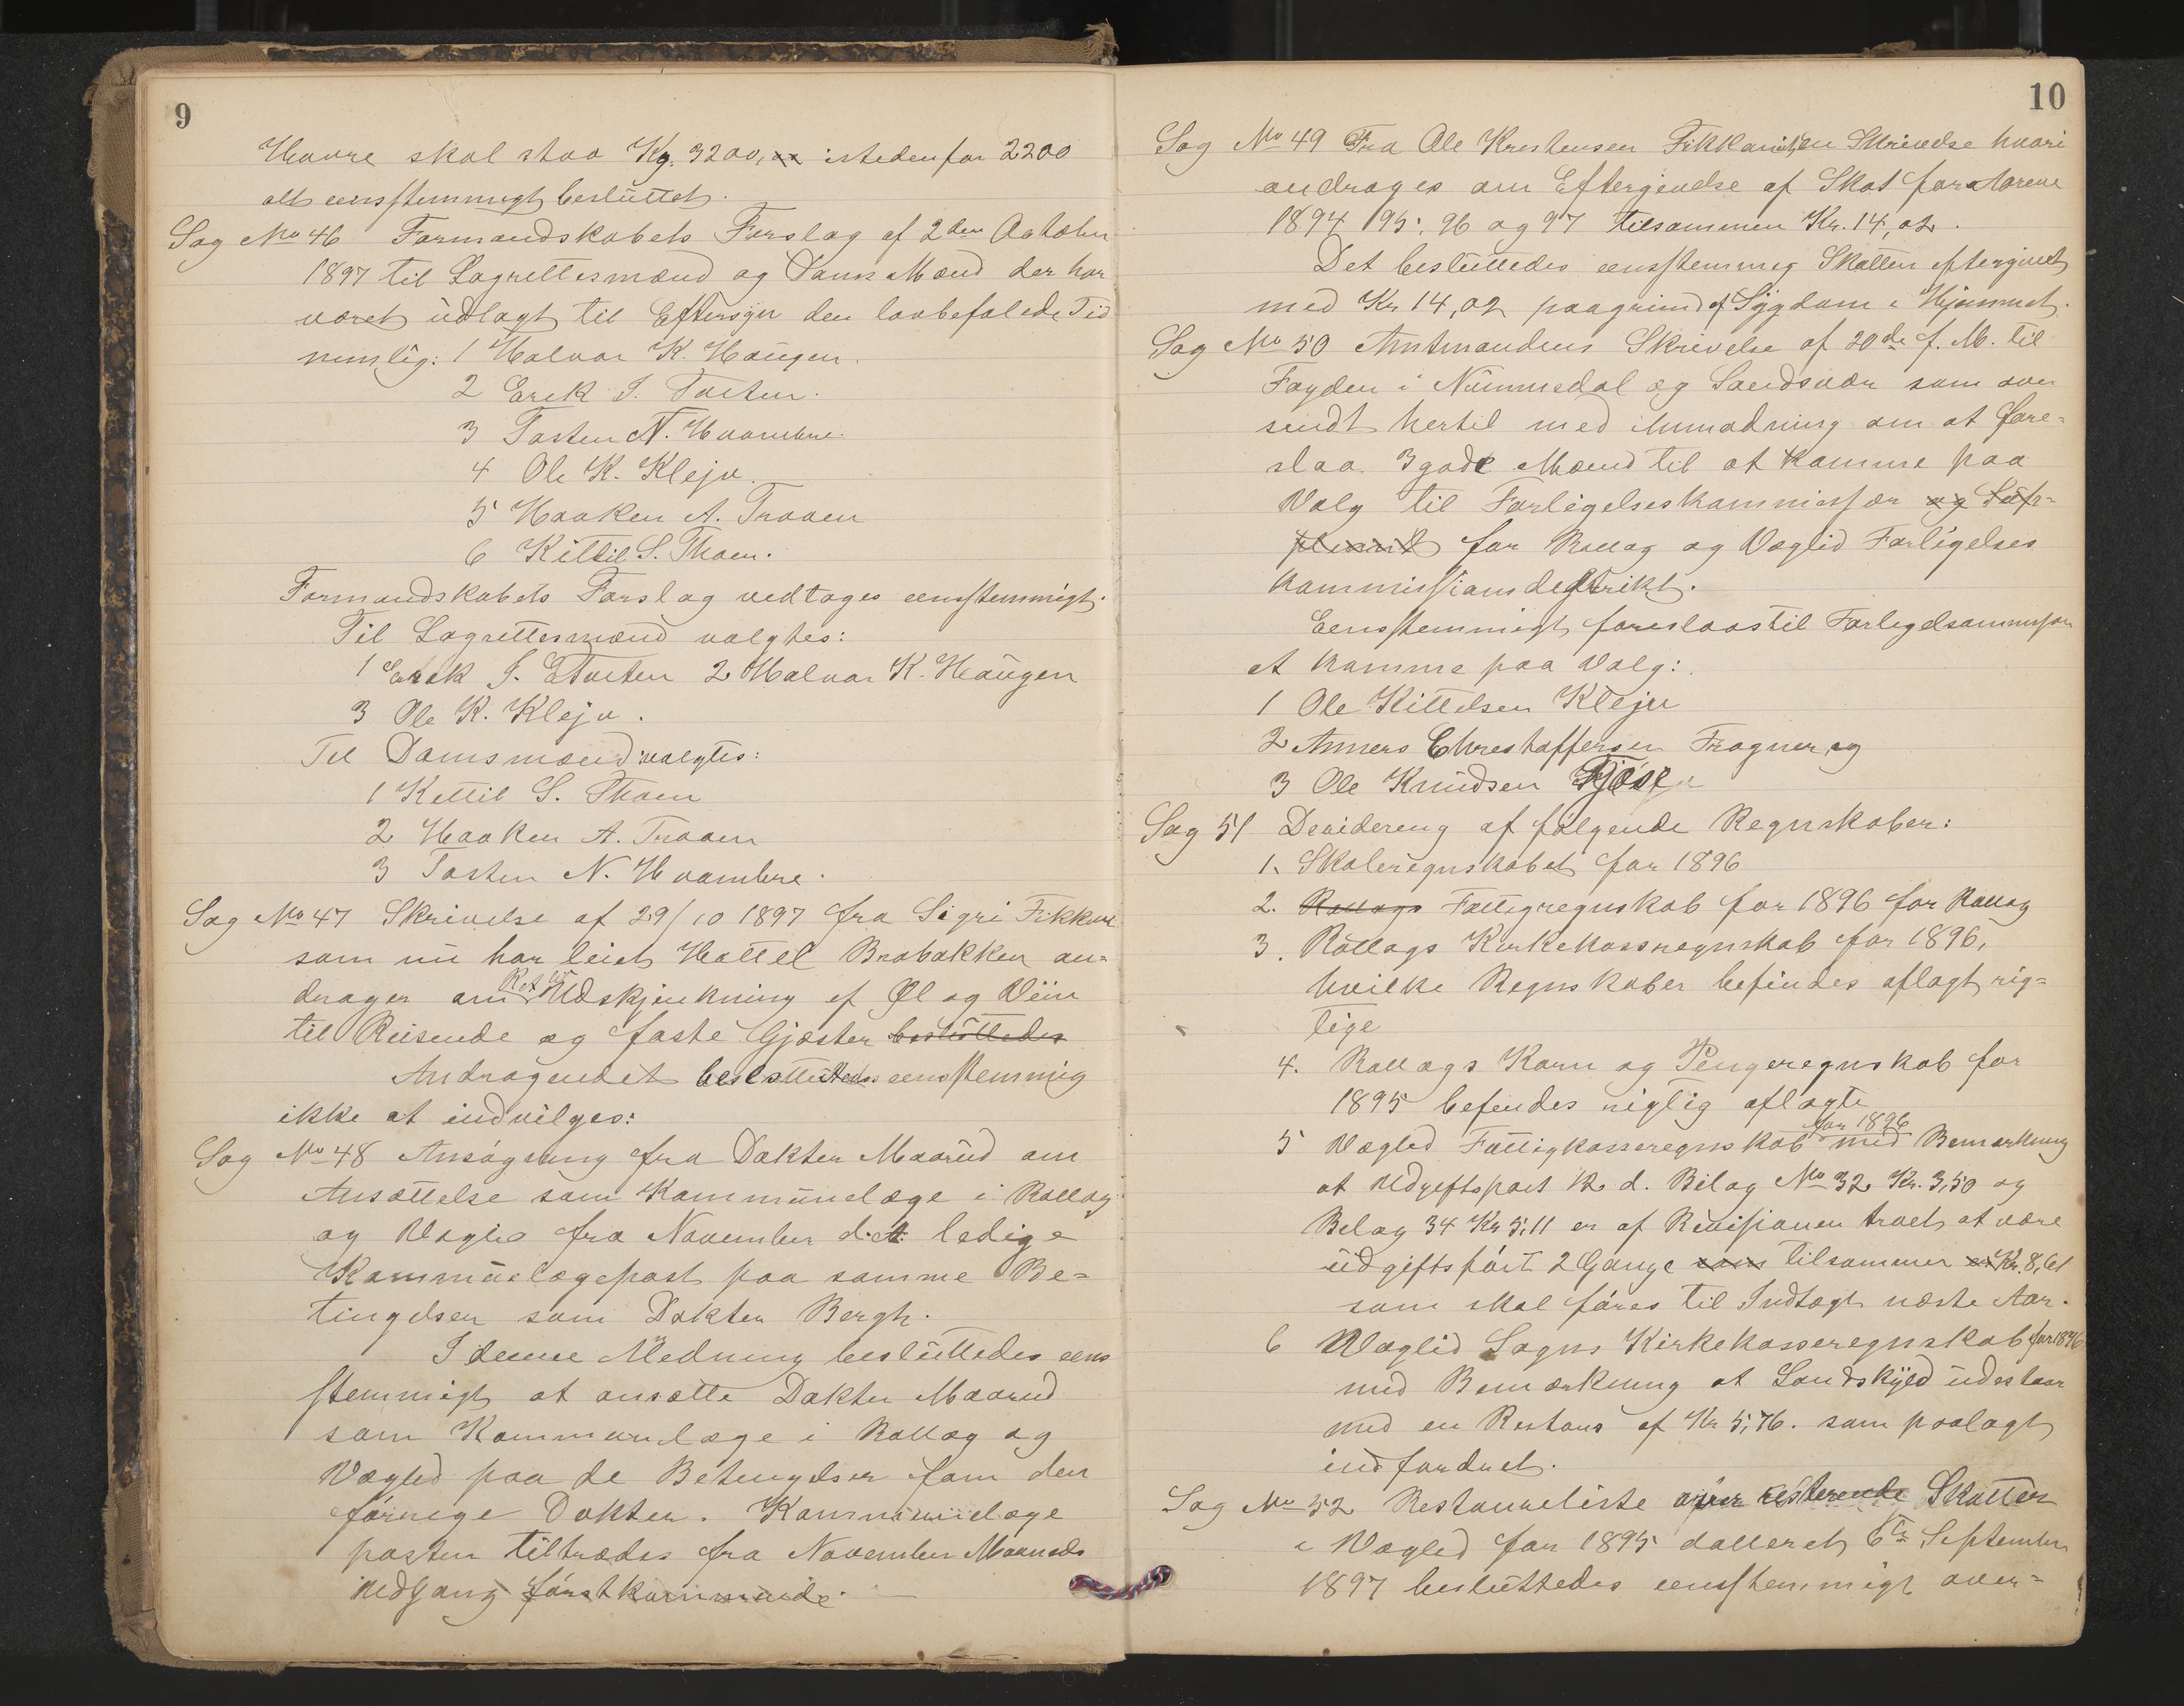 9
Hvore skal staa Kg. 3200,00 istedenfor 2200
alt eensstemmigt besluttet.
Sag No 46 Formandskabets Forslag af 2den Actober
1897 til Lagrettesmænd og Doms Mænd der har
været udlagt til Eftersyn den lovbefalede Tid
nemlig: 1 Halvor K. Haugen.
2 Erek J. Torten.
3 Tosten N. Hvambre.
4 Ole K. Kleju.
5 Haaken A. Traaen
6 Kittil S. Thoen.
Formandskabets Forslag vedtages eensstemmigt.
Til Lagrettesmænd valgtes:
1 Erek J. Torten 2 Halvor K. Haugen
3 Ole K. Kleju.
Til Domsmænd valgtes:
1 Kettil S. Thoen
2 Haaken A. Traaen
3 Tosten N. Hvambre.
Sag No 47 Skrivelse af 29/10 1897 fra Sigri Fikkan
som nu har leiet Hottel Brobakken an=
drager om Ret til Udskjenkning af Øl og Viin
til Reisende og faste Gjæster besluttedes
Andragendet besluttedes eensstemmig
ikke at indvilges:
Sag No 48 Ansøgning fra Dokter Maarud om
Ansættelse som Kommunelæge i Rollag
og Veglid fra November d. A. ledige
Kommunelægepost paa samme Be=
tingelser som Dokter Bergh.
I denne Medning besluttedes eens
stemmigt at ansætte Dokter Maarud
som Kommunelæge i Rollag og
Vegled paa de Betengelser som den
forrige Dokter. Kommunelæge
posten tiltrædes fra November Maaneds
Udgang førstkommende.
10
Sag No 49 Fra Ole Krestensen Fikkan en Skrivelse hvori
andrages om Eftergivelse af Skat for Aarene
1894 95, 96 og 97 tilsammen Kr. 14,02.
Det besluttedes eensstemmig Skatten eftergivet
med Kr 14,02 paagrund af Sygdom i Hjemmet.
Sag No 50 Amtmandens Skrivelse af 20de f. M. til
Fogden i Nummedal og Sandsvær som over
sendt hertil med Anmodning om at fore=
slaa 3 gode Mænd til at komme paa
Valg til Forligelseskommissær og Sup=
plement for Rollag og Veglid Forligelses
kommissionsdestrikt.
Eensstemmigt foreslaas til Forligelsommissær
at komme paa Valg:
1 Ole Kittelsen Kleju
2 Anners Chrestoffersen Fragner og
3 Ole Knudsen
Sag 51 Decidereng af følgende Regnskaber:
1. Skoleregnskabet for 1896
2. Rollags Fattigregnskab for 1896 for Rollag
3. Rollags Kirkekasseregnskab for 1896,
hvilke Regnskaber befindes aflagt rig=
tige
4. Rollags Korn og Pengeregnskab for
1895 befendes rigtig aflagte
5 Vegled Fattigkasseregnskab for 1896 med Bemærkning
at Udgeftspost 12 d. Bilag No 32 Kr. 3,50 og
Belag 34 Kr 5,11 er af Revisionen troet at være
udgiftsført 2 Gange som tilsammen er Kr. 8,61
som skal føres til Indtægt næste Aar.
6 Veglid Sogns Kirkekasseregnskab for 1896
med Bemærkning at Landskyld udestaar
med en Restans af Kr 5,76. som paalagt
indfordret.
Sag No 52 Restanseliste over resterende Skatter
i Vegled for 1895 datteret 6te September
1897 besluttedes eensstemmigt over=